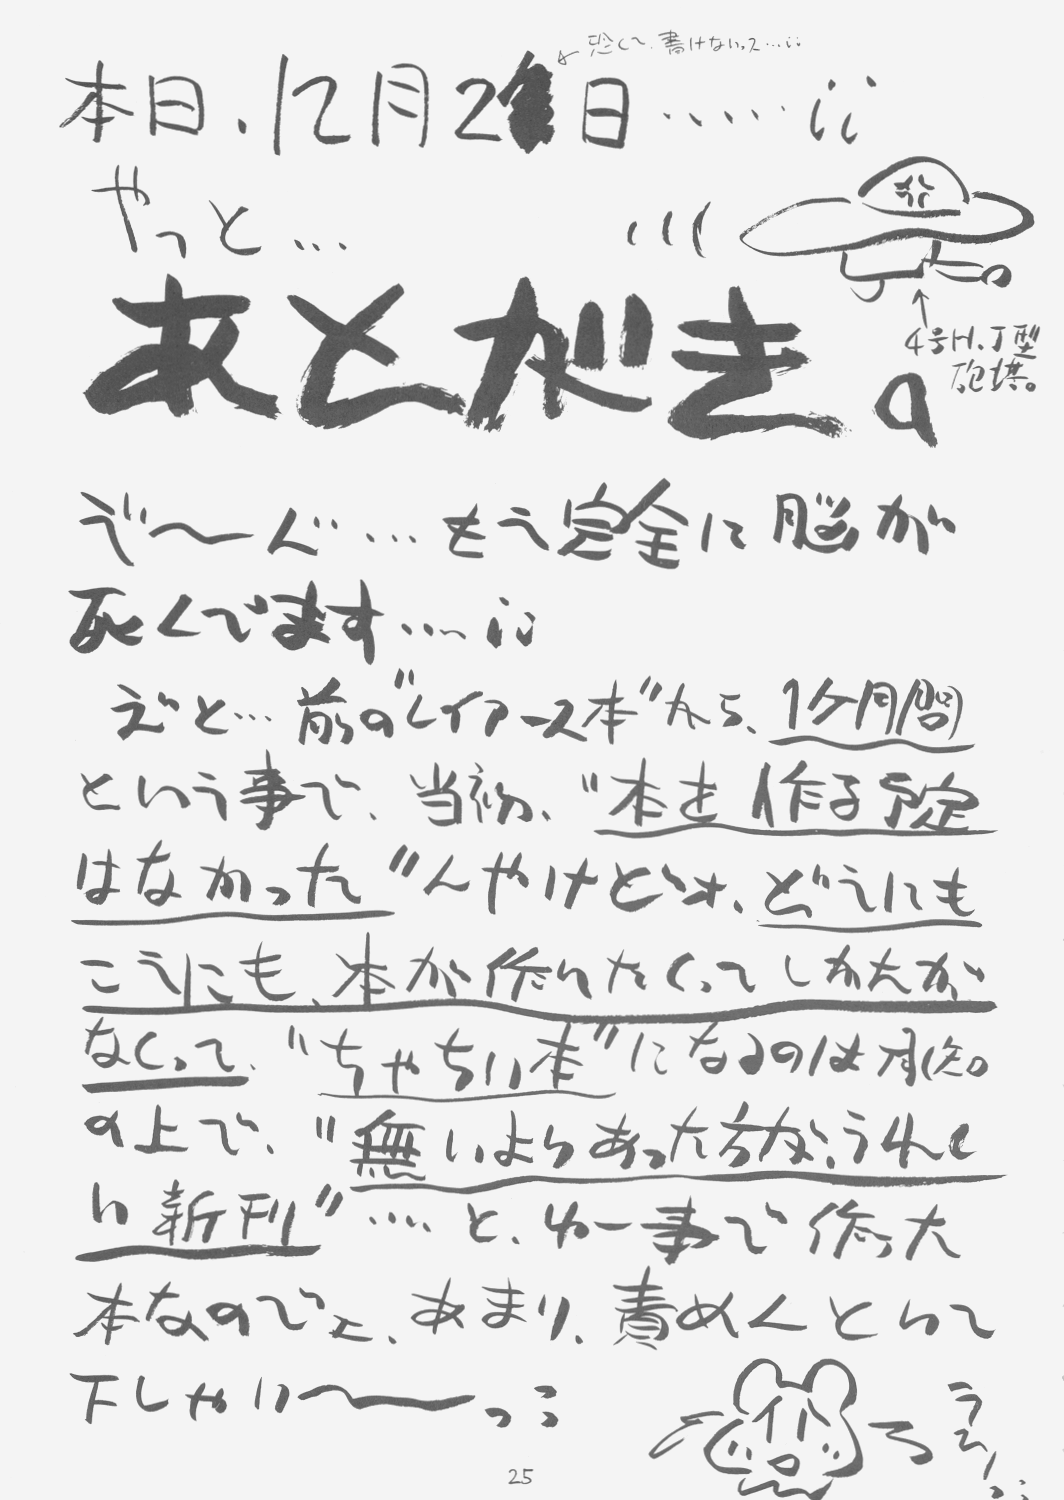 恐くて、書けないっス…;;
本日、12月2 日……;;
やっと…
4号H、J型
砲塔。
あとがき。
ぞ〜ぐ…もう完全に脳が
死んでます…;;
えと…前の"レイアース本"から、1ケ月間
という事で、当初、"本を作る予定
はなかった"んやけどォ、どうにも
こうにも、本が作りたくってしかたが
なくって、"ちゃちい本"になるのは承知。
の上で、"無いよりあった方が、うれし
い新刊"…と、ゆー事で作った
本なのでェ、あまり、責めんといて
下しゃい〜〜っ;;
25